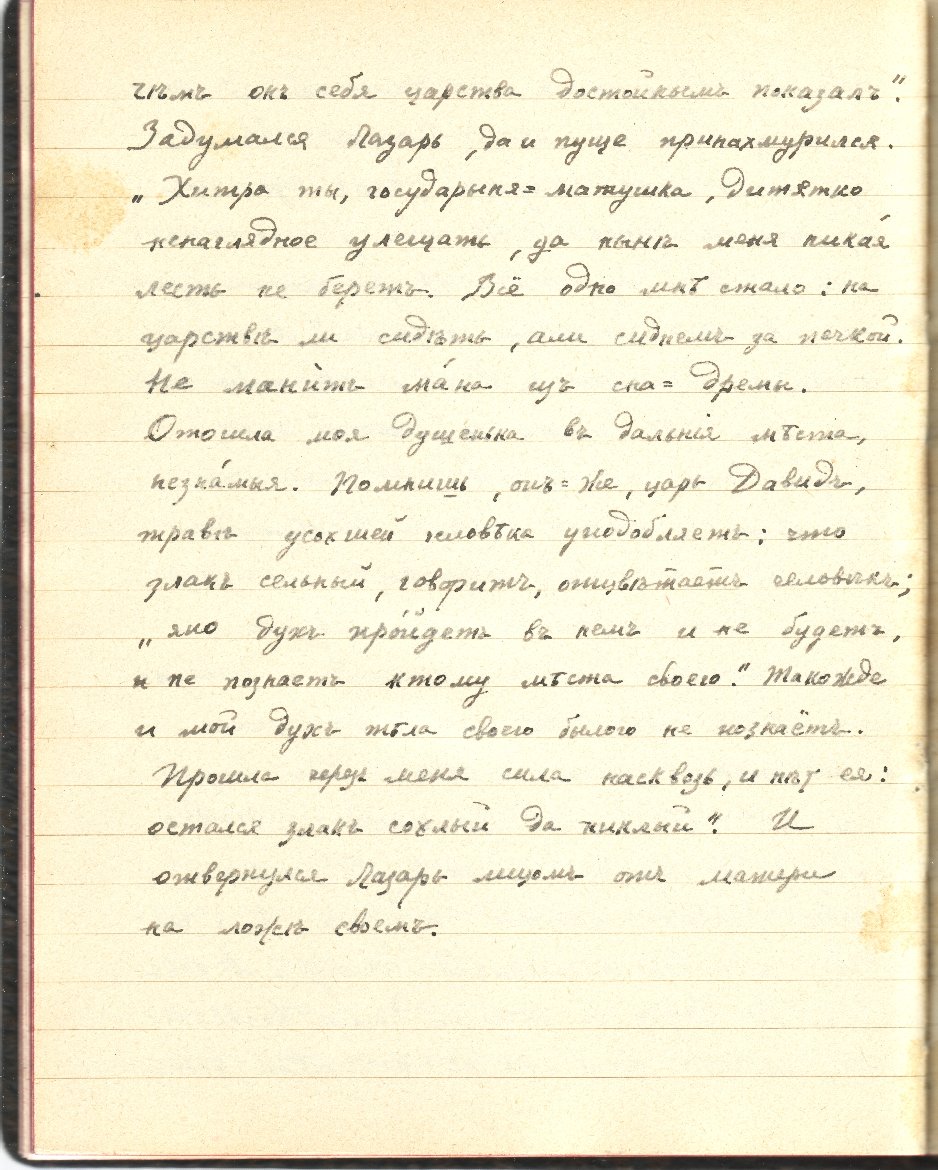 чѣмъ онъ себя царства достойнымъ показалъ".
Задумался Лазарь, да и пуще принахмурился.
„Хитра ты, государыня=матушка, дитятко
ненаглядное улещать, да нынѣ меня никая́
лесть не беретъ. Всё одно мнѣ стало: на
царствѣ ли сидѣть, али сиднемъ за печкой.
Не мани́тъ ма́на изъ сна=дремы.
Отошла моя душенька въ дальнія мѣста,
незна́мыя. Помнишь, онъ=же, царь Давидъ,
травѣ усохшей человѣка уподобляетъ; что
злакъ сельный, говоритъ, отцвѣтаетъ человѣкъ;
„яко духъ про́йдетъ въ немъ и не будетъ,
и не познаетъ ктому мѣста своего." Такожде
и мой духъ тѣла своего былого не познаётъ.
Прошла черезъ меня сила насквозь, и нѣт ея:
остался злакъ сохлый да никлый". И
отвернулся Лазарь лицомъ отъ матери
на ложѣ своемъ.